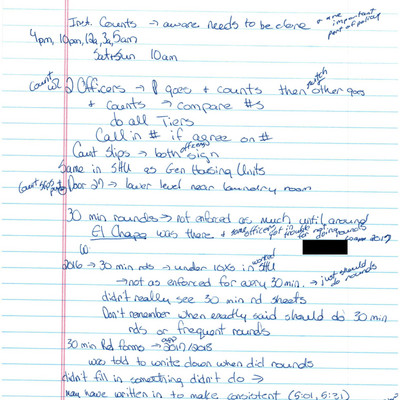 Inst. Counts → aware needs to be done + are important part of policy
4pm, 10pm, 12a, 3a, 5am
Sat+Sun 10am
Count w/ 2 Officers → 1 goes + counts then switch other goes
+ counts → compare #s
do all Tiers
Call in # if agree on #
Count Slips → both officers sign
Same in SHU as Gen Housing Units
Count slips Door 29 → lower level near laundry room
30 min rounds → not enforced as much until around
El Chapo was there + officers get in trouble for not doing rounds 2017
2016 → 30 min rds → under in SHU
→ not as enforced for every 30 min. → just should do rounds
didn't really see 30 min rd sheets
Don't remember when exactly said should do 30 min
rds or frequent rounds
30 min Rd forms → 2017/2018
was told to write down when did rounds
didn't fill in something didn't do →
may have written in to make consistent (5:01, 5:31)